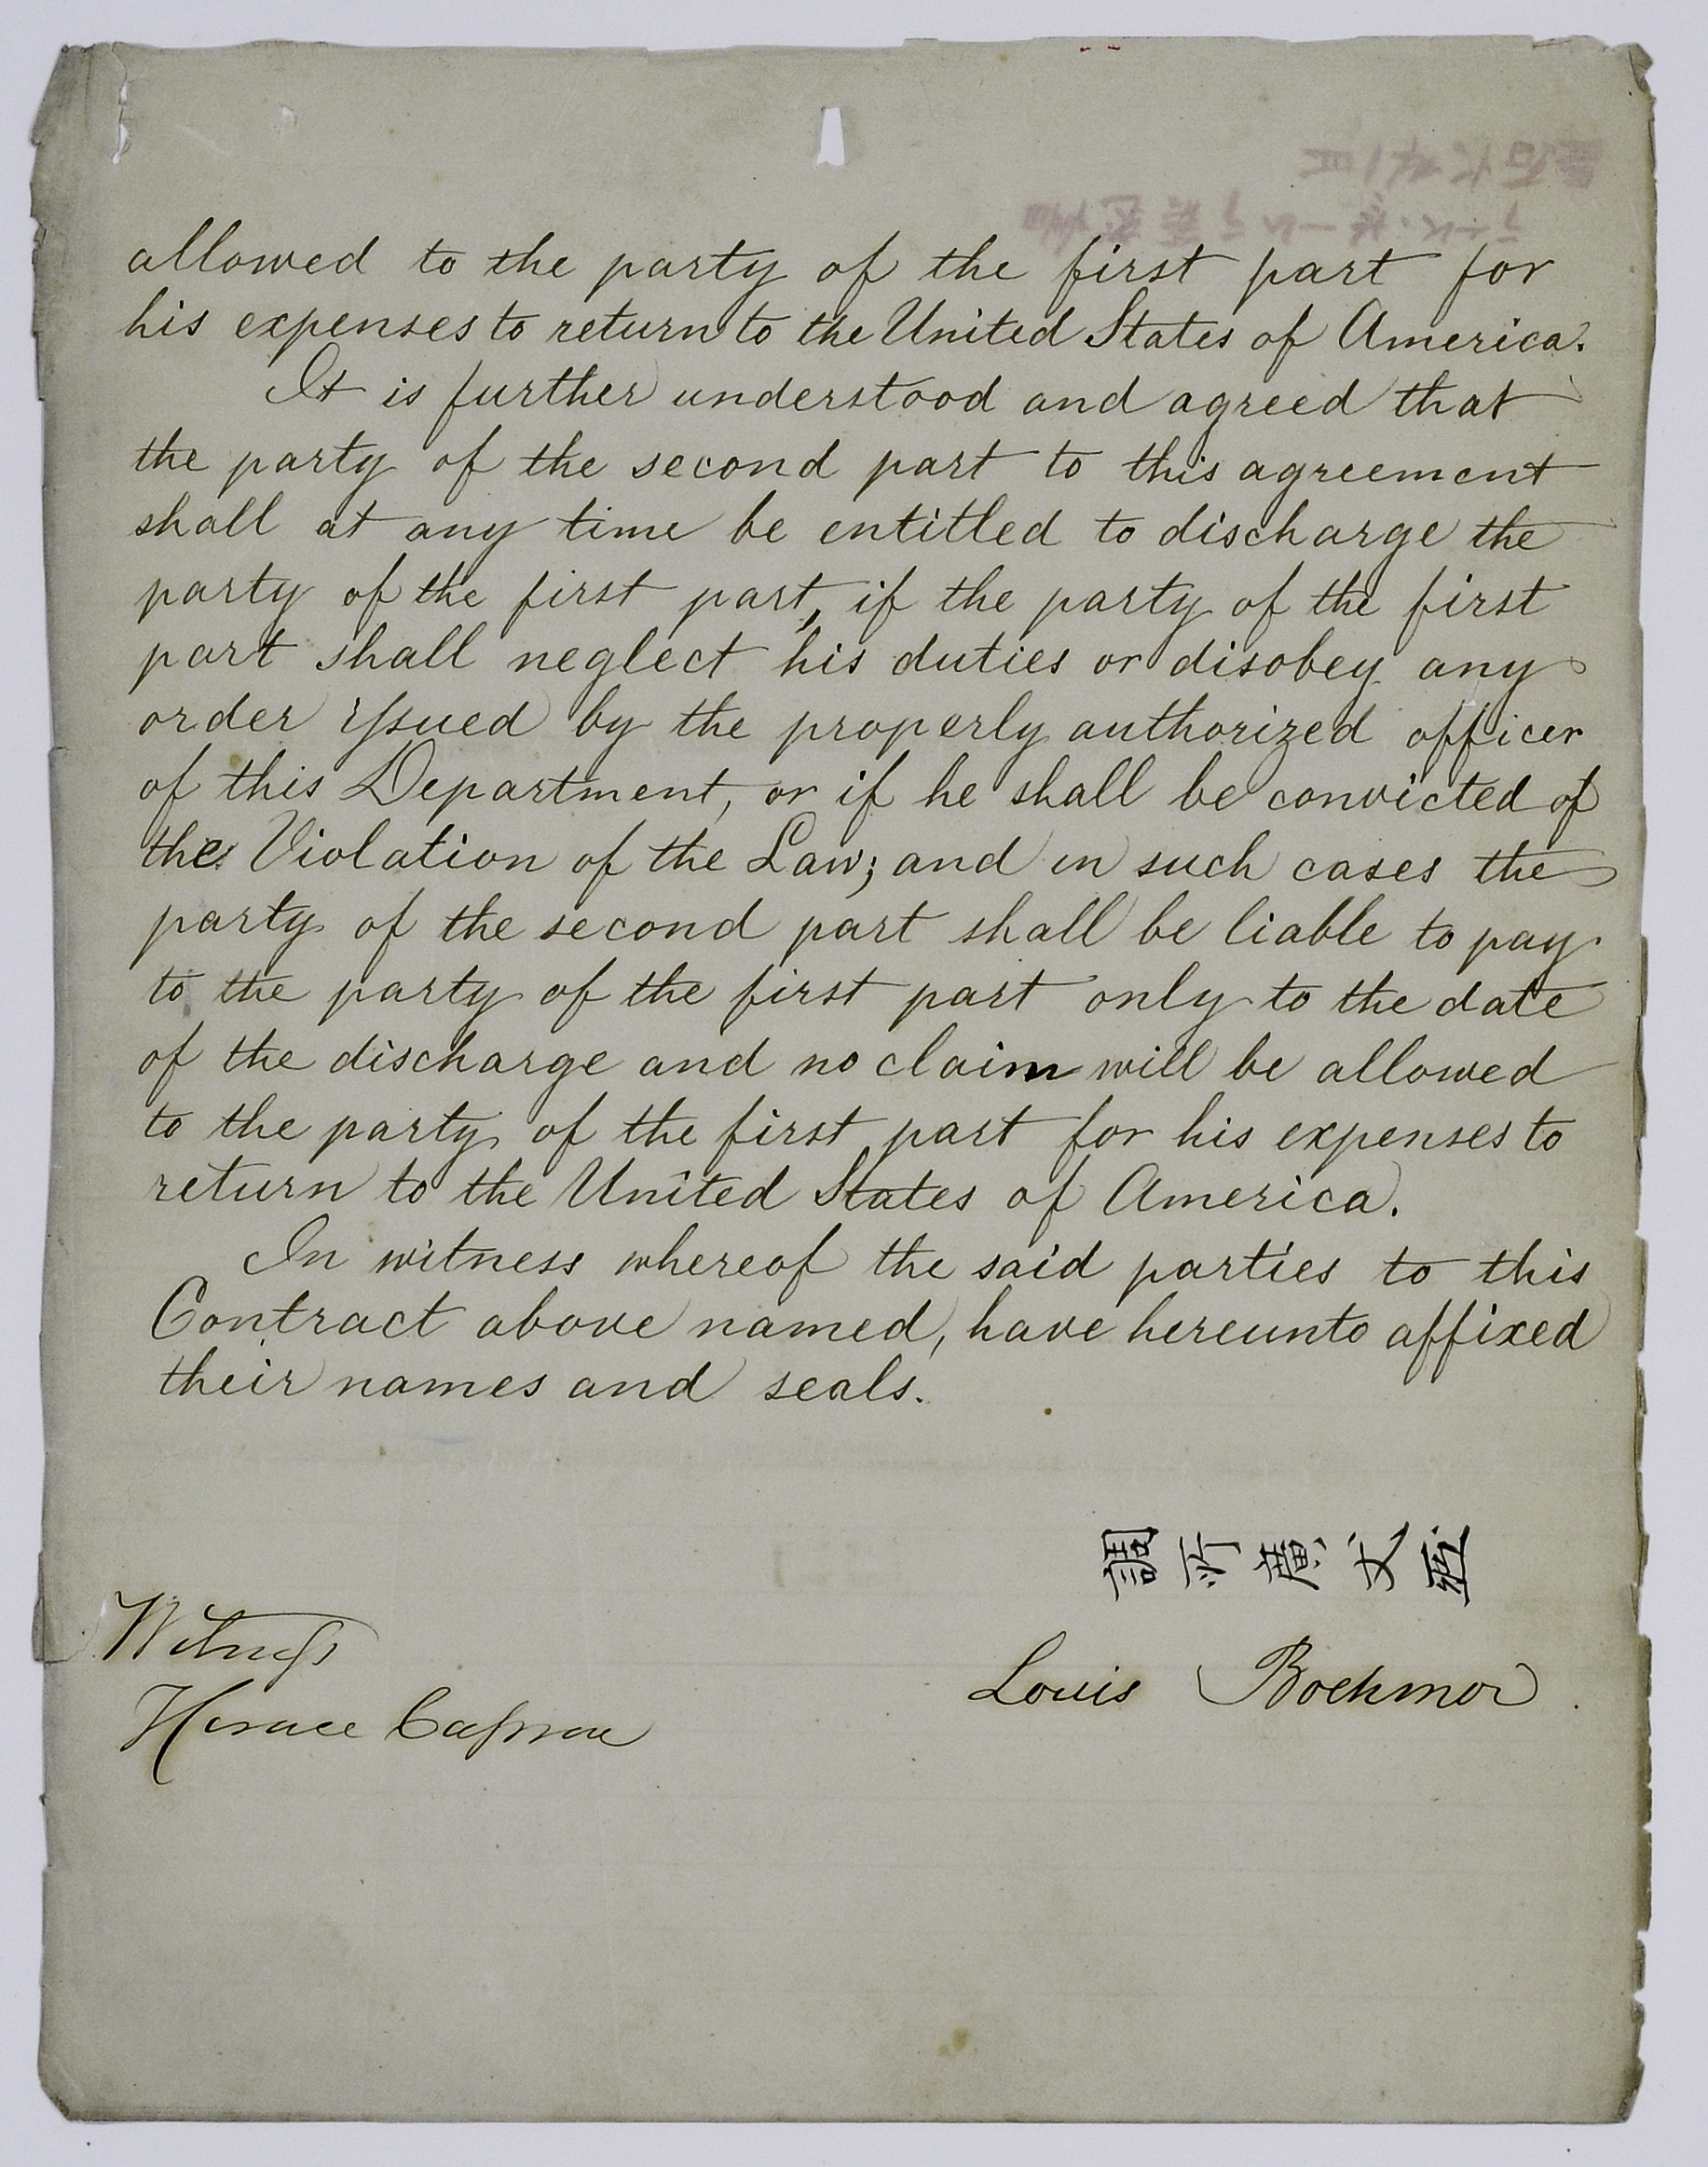 allowed to the party of the first part for
his expenses to return to the United States of America.
It is further understood and agreed that
the party of the second part to this agreement
shall at any time be entitled to discharge the
party of the first part, if the party of the first
part shall neglect his duties or disobey any
order issued by the properly authorized officer
of this Department, or if he shall be convicted of
the Violation of the Law; and in such cases the
party of the second part shall be liable to pay
to the party of the first part only to the date
of the discharge and no claim will be allowed
to the party of the first part for his expenses to
return to the United States of America.
In witness whereof the said parties to this
Contract above named, have hereunto affixed
their names and seals.
調所廣丈
Louis Boehmer
Witness
Horace Capron